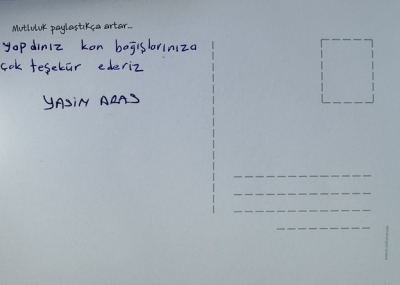 Mutluluk paylaştıkça artar...
yapdınız kan bağışlarınıza
çok teşekür ederiz
YASİN ARAS